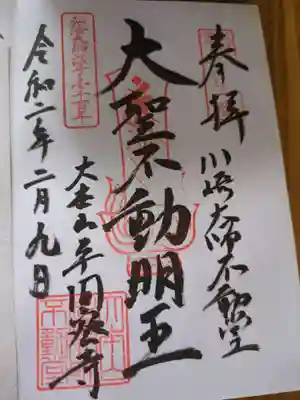 奉拝
川崎大師不動堂
大聖不動明王
大本山平間寺
令和二年二月九日